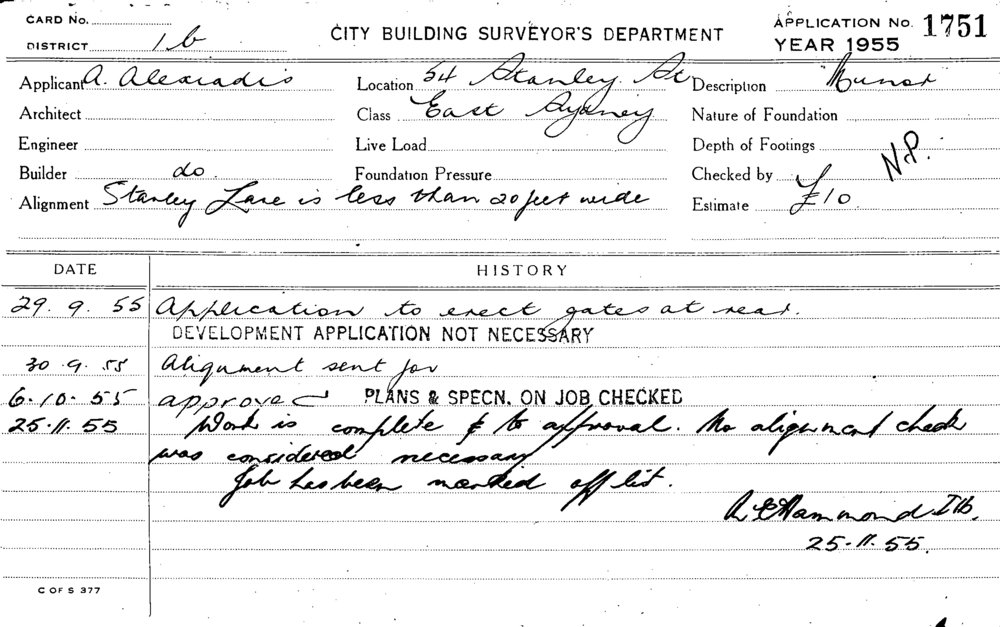 CARD No.
DISTRICT 1b
CITY BUILDING SURVEYOR'S DEPARTMENT
APPLICATION No. 1751
YEAR 1955
Applicant A. Alexiadis
Location 54 Stanley St
Description Minor
Architect
Class East Sydney
Nature of Foundation
Engineer
Live Load
Depth of Footings
Builder do
Foundation Pressure
Checked by
N.P.
Alignment Stanley Lane is less than 20 feet wide
Estimate £10
DATE
HISTORY
29. 9. 55 Application to erect gates at rear.
DEVELOPMENT APPLICATION NOT NECESSARY
30. 9. 55 Alignment sent for
6. 10. 55 approved PLANS & SPECN. ON JOB CHECKED
25. 11. 55 Work is complete & to approval. No alignment check
was considered necessary
Job has been marked off list.
Hammond
25. 11. 55.
C OF S 377